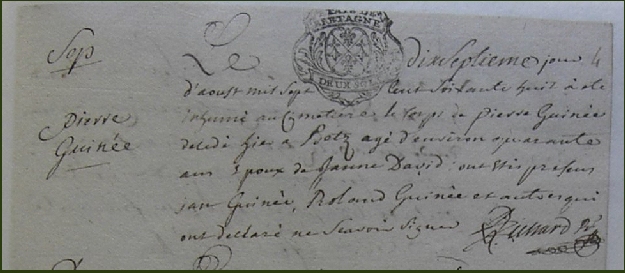 ETATS DE
BRETAGNE
DEUX SOLS
Sep
Pierre
Guinée
Le dixseptieme jour
d'aoust mil sept cent soixante huit a eté
inhumé au cimetiere le corps de pierre Guinée
decedé hier a agé d'environ quarante
ans Epoux de Janne David ont Etés presens
jan Guinée, Roland Guinée et autres qui
ont declaré ne Scavoir Signer